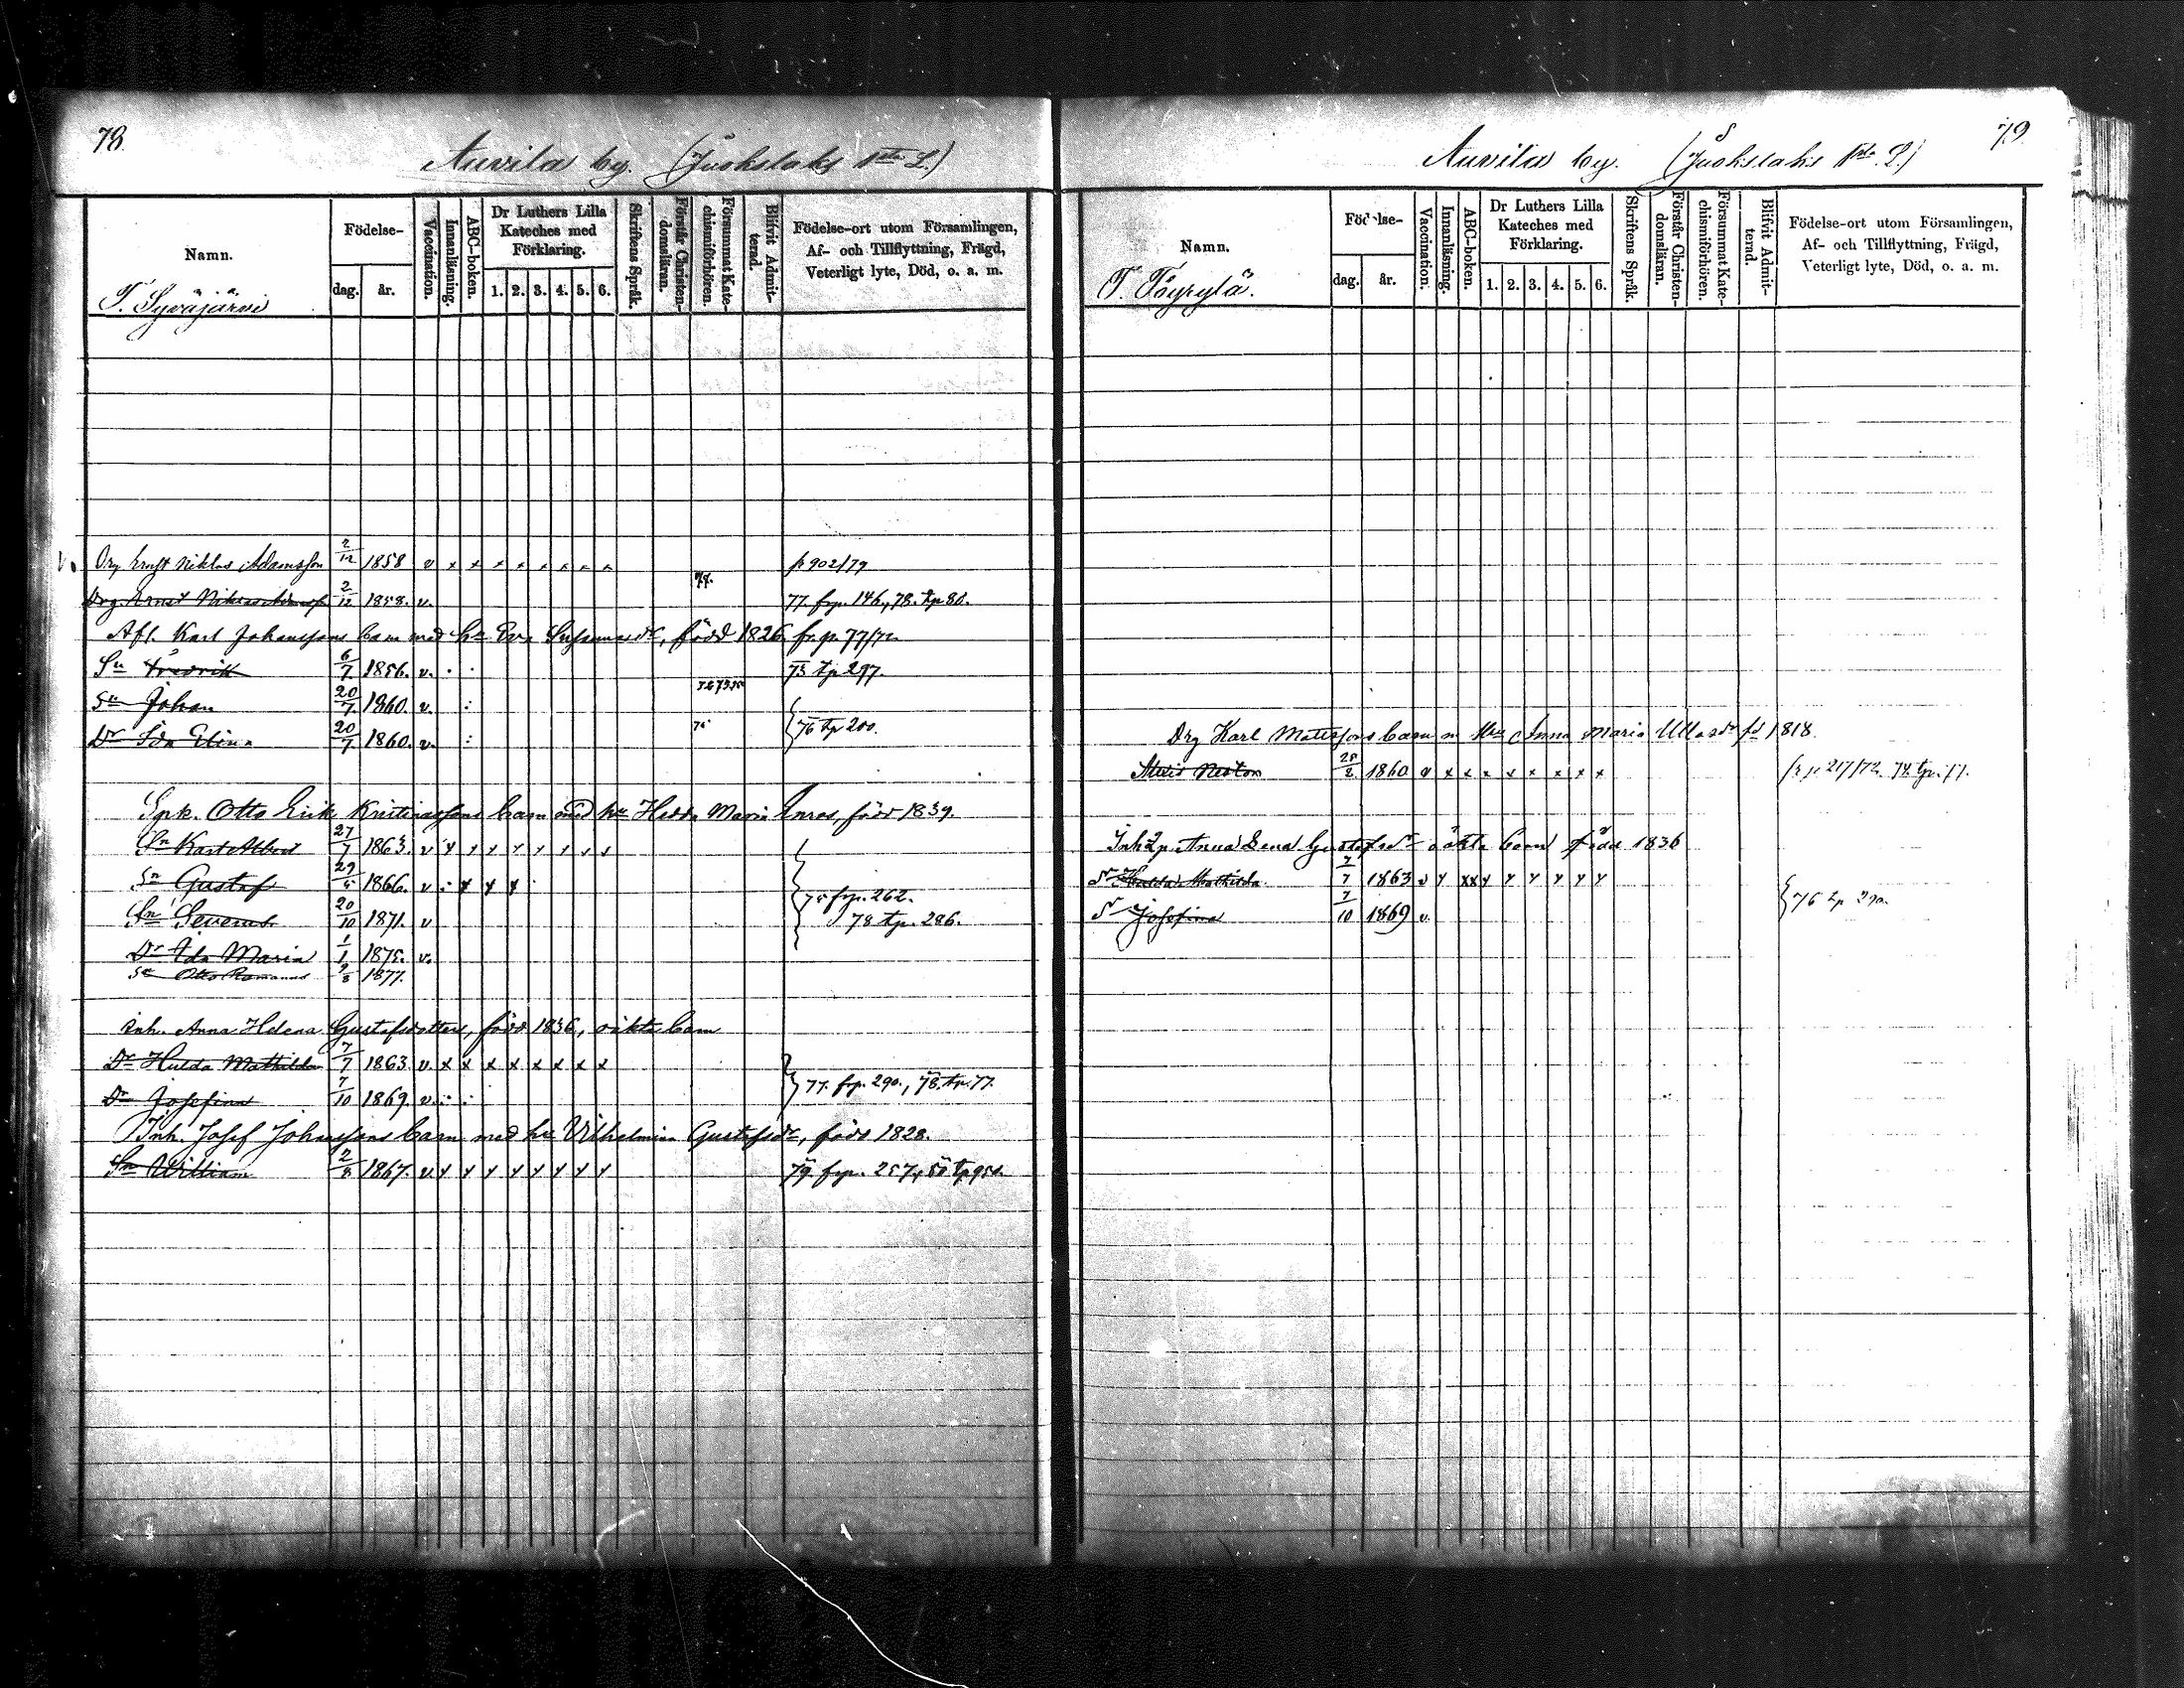 78.
Auvila by. (Juokslaks 1sta L.)
Namn.
T. Syväjärvi
Födelse-
dag.
år.
Vaccination.
Innanläsning.
ABC-boken.
Dr Luthers Lilla
Kateches med
Förklaring.
1. 2. 3. 4. 5. 6.
Skriftens Språk.
Förstår Christen-
domsläran.
Försummat Kate-
chismiförhören.
Blifvit Admit-
terad.
Födelse-ort utom Församlingen,
Af- och Tillflyttning, Frägd,
Veterligt lyte, Död, o. a. m.
Drg Ernst Niklas Adamsson 2/12 1858 v x x x x x x x x p 902/79
Drg. Ernst Niklas 2/12 1858. v. 77. frp. 146., 78. tp 80.
Afl. Karl Johanssons barn med h. Eva, född 1826, fr. p. 77/72
Sn Fredrik 6/7 1856. v. 73 tp 297.
Sn Johan 20/7 1860. v.
Dr Ida Elina 20/7 1860. v. 76 tp 200.
Spk. Otto Erik Kristianssons barn med hu Hedda Maria Enros, född 1839.
Sn Karl Albert 27/7 1863. v y y y y y y y y
Sn Gustaf 29/5 1866. v y y y 75 frp. 262.
Sn Severus 20/10 1871. v 78 tp. 286.
Dr Ida Maria 1/1 1875. v.
Sn Otto Romanus 9/8 1877.
Inh. Anna Helena Gustafsdotter, född 1836, oäkta barn
Dr Hulda Mathilda 7/7 1863. v x x x x x x x x
Dr Josefina 7/10 1869. v. 77. frp. 290., 78. tp. 77.
Inh. Josef Johanssons barn med hu Vilhelmina Gustafsdr, född 1828.
Sn William 2/8 1867. v y y y y y y y y 79. frp. 257,
79
Auvila by. (Juokslaks 1sta L.)
Namn.
T. Töyrylä.
Födelse-
dag.
år.
Vaccination.
Innanläsning.
ABC-boken.
Dr Luthers Lilla
Kateches med
Förklaring.
1. 2. 3. 4. 5. 6.
Skriftens Språk.
Förstår Christen-
domsläran.
Försummat Kate-
chismiförhören.
Blifvit Admit-
terad.
Födelse-ort utom Församlingen,
Af- och Tillflyttning, Frägd,
Veterligt lyte, Död, o. a. m.
Drg Karl Matssons barn m Hu Anna Maria Ullasdr fd 1818.
Nestor 28/2 1860 v x x x x x x x x fr p 217/72. 78 tp. 77.
Inh Anna Lena Gustafsdr oäkta barn född 1836
Dr Hulda Mathilda 7/7 1863 v y xx y y y y y y
Dr Josefina 7/10 1869 v. 76 tp 290.